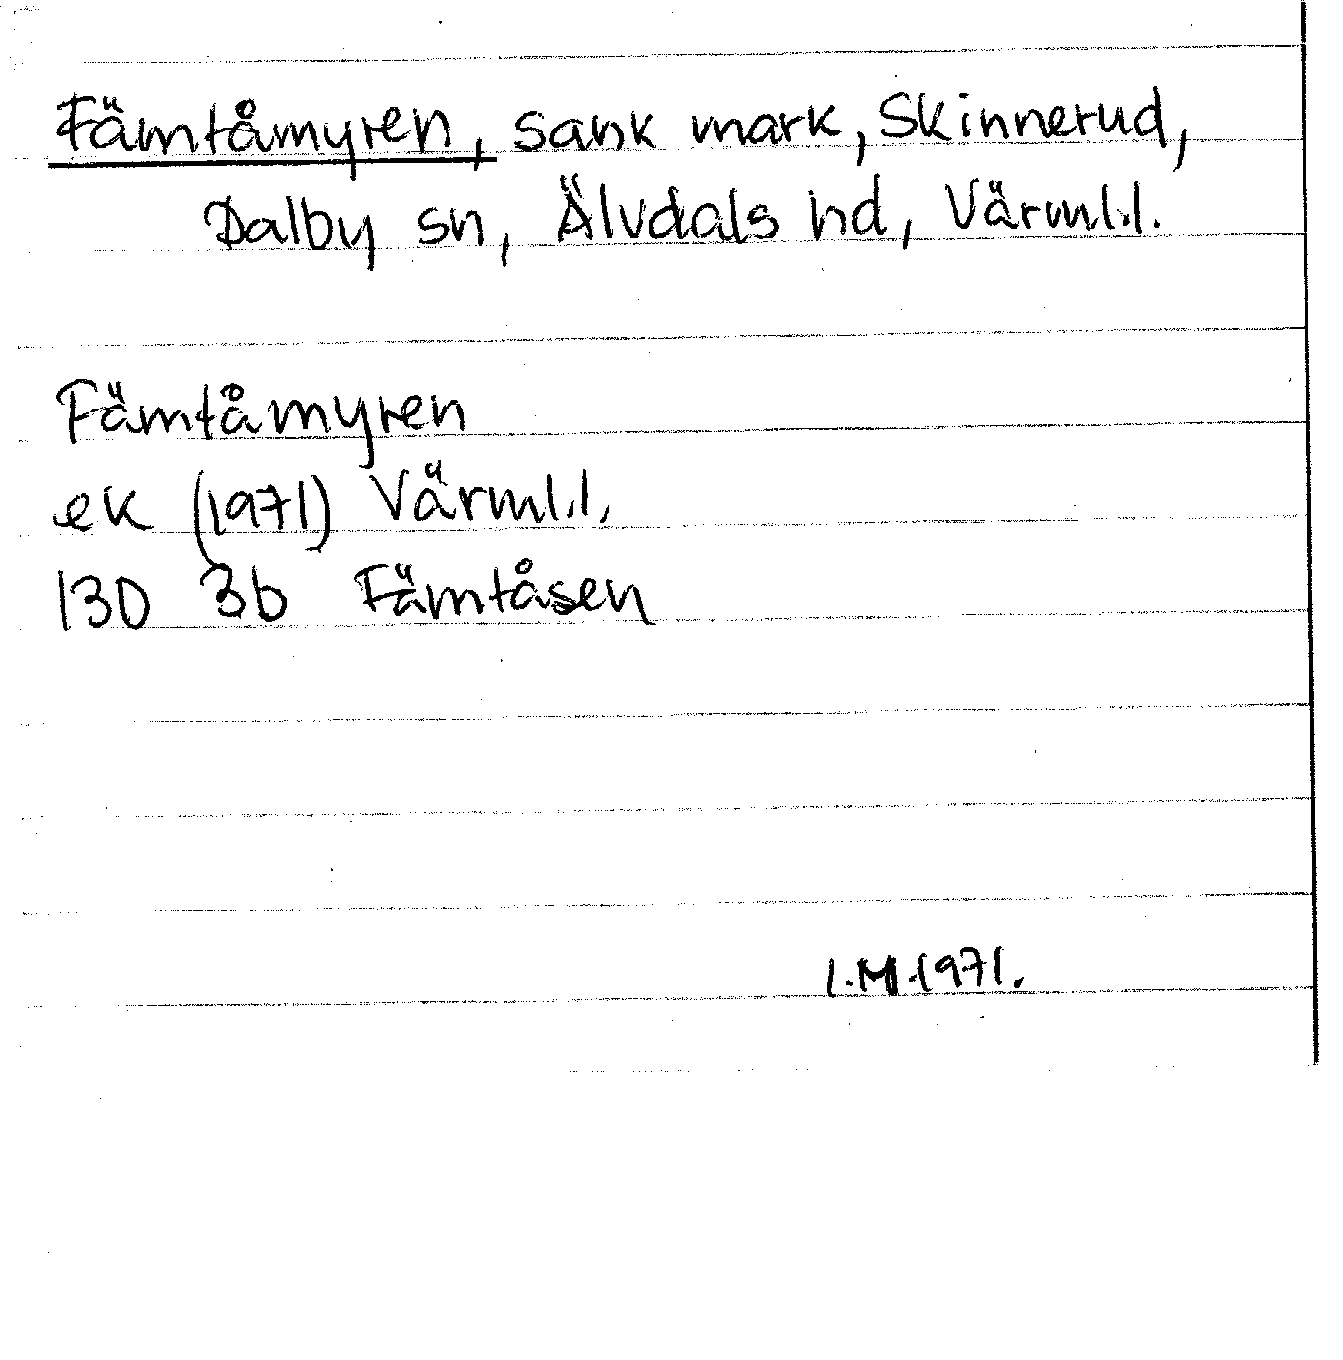 Fämtåmyren, sank mark, Skinnerud,
Dalby sn, Älvdals hd, Värml.l.
Fämtåmyren
ek (1971) Värml.l,
13D 3b Fämtåsen
I.M.1971.